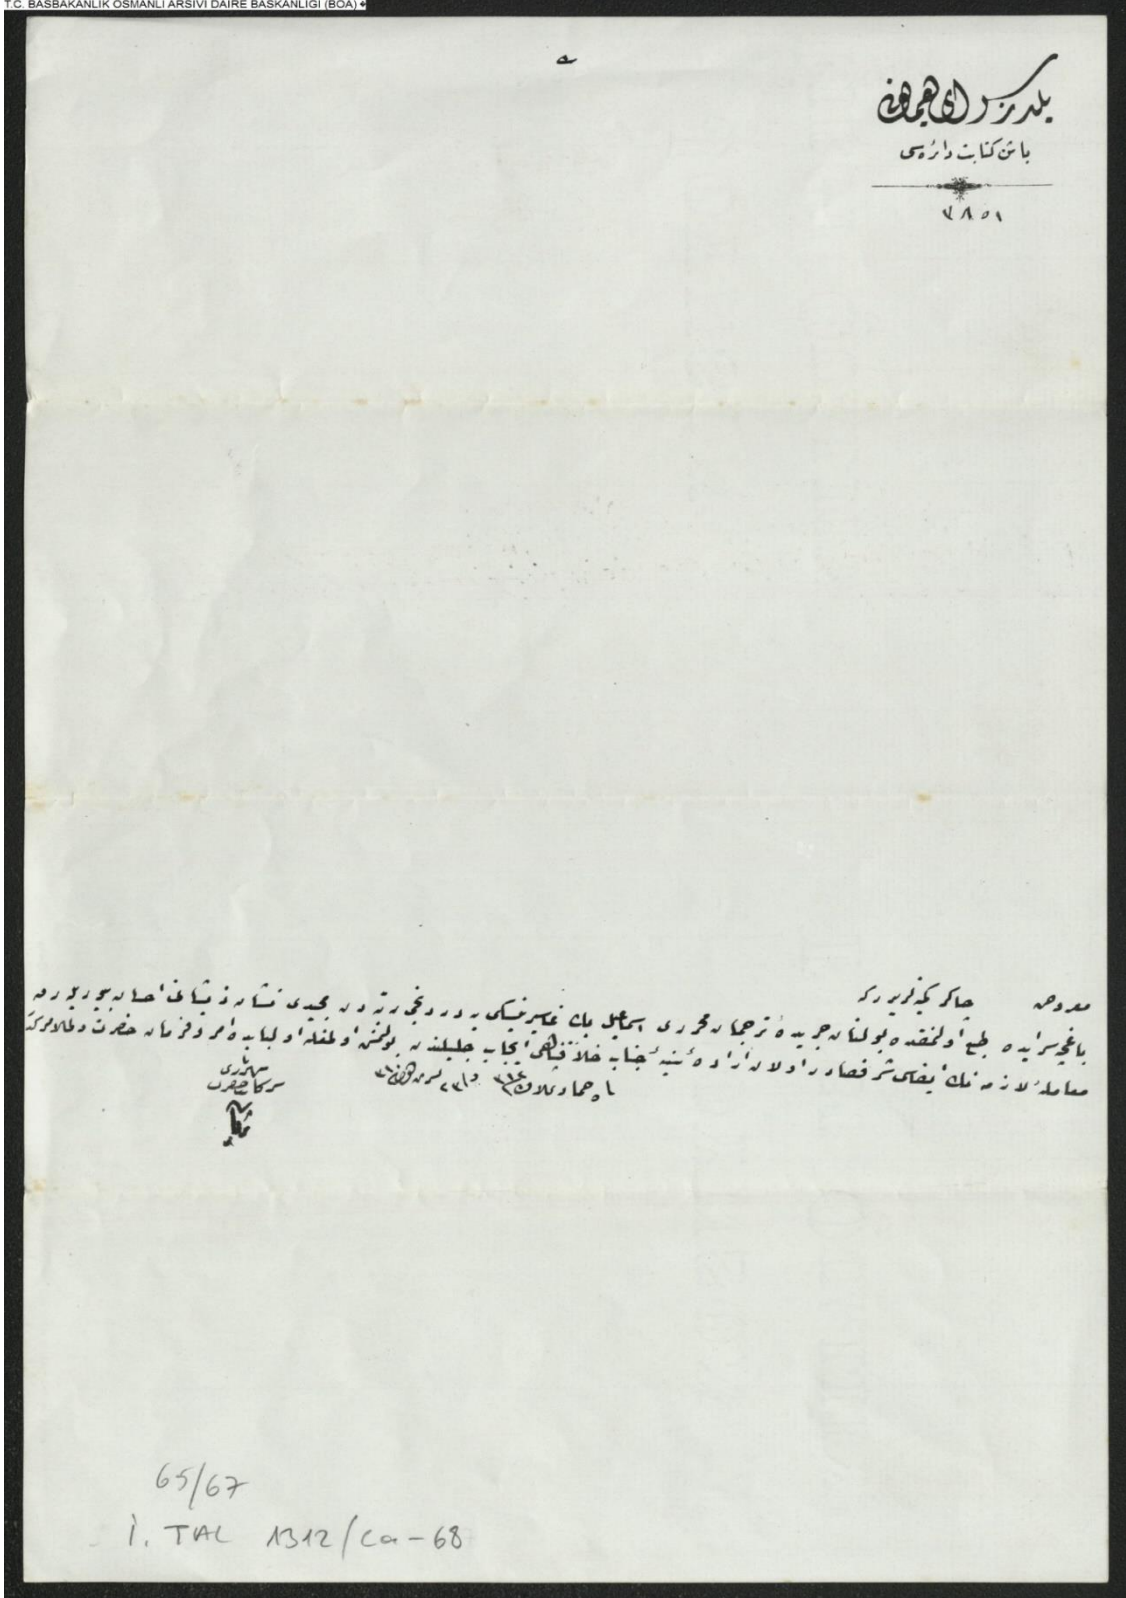 T.C. BASBAKANLIK OSMANLI ARSIVI DAIRE BASKANLIGI (BOA)
يلدز سراى همايونى
باش كتابت دائره سى
٣٨٥١
معروض چاكر كمينه لريدر كه
باغچه سرايده طبع اولنمقده بولنان جريدۀ ترجمان محررى اسماعيل بك غاسپرنسكى يه دردنجى رتبه دن مجيدى نشان ذيشانى احسان بيوريله رق
معاملۀ لازمه نك ايفاسى شرفصادر اولان ارادۀ سنيۀ جناب خلافتپناهى ايجاب جليلندن بولنمش اولمغله اولبابده امر و فرمان حضرت ولى الامركدر
سر كاتب حضرت شهريارى
65/67
İ. TAL 1312/Ca-68